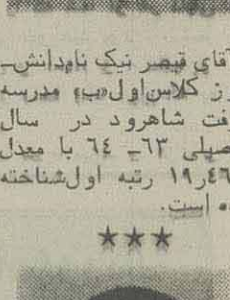 آقای قیصر نیک نام‌دانش‌ـ
ز کلاس‌اول«ب» مدرسه
فت شاهرود در سال
صیلی ۶۳ـ ۶۴ با معدل
۱۹ر۴۶ رتبه اول‌شناخته
ه است.
★★★